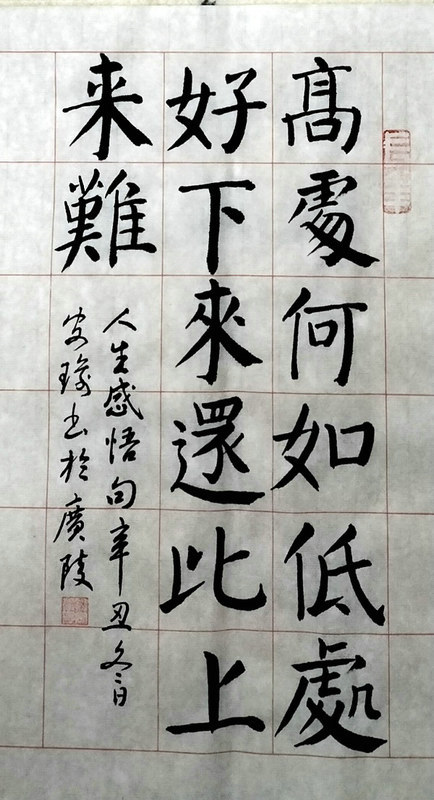 高處何如低處
好下來還比上
来難
人生感悟句辛丑冬日
安瑔书於廣陵